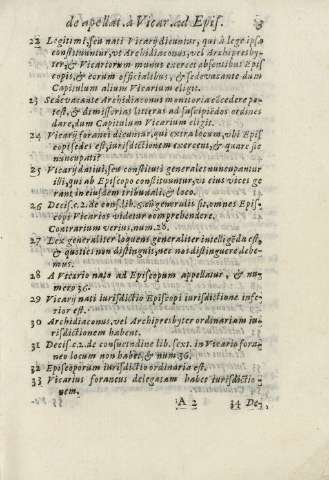 de apellat. à Vicar. ad Epis. 3
22 Legitimi, seu nati Vicarij dicuntur, qui à lege ipsa
constituuntur, vt Archidiaconus, vel Archipresby-
ter; & Vicariorum munus exercet absentibus Epis
copis, & eorum officialibus, & sede vacante dum
Capitulum alium Vicarium eligit.
23 Sede vacante Archidiaconus monitoria cōcedere po-
test, & dimissorias litteras ad suscipiēdos ordines
dare, dum Capitulum Vicarium eligit.
24 Vicarij foranei dicuntur, qui extra locum, vbi Epis
copi sedes est, iurisdictionem exercent, & quare sic
nuncupati?
25 Vicarij datiui, seu constituti generales nuncupantur
illi, qui ab Episcopo constituuntur, vt eius vices ge
rant in eiusdem tribunali, & loco.
26 Decis. c. 2. de cons. lib. 6. cū generalis sit, omnes Epis-
copi Vicarios videtur comprehendere.
Contrarium verius, num. 28.
27 Lex generaliter loquens generaliter intelligēda est,
& quoties non distinguit, nec nos distinguere debe-
mus.
28 A Vicario nato ad Episcopum appellatur, & nu-
mero 36.
29 Vicarij nati iurisdictio Episcopi iurisdictione infe-
rior est.
30 Archidiaconus, vel Archipresbyter ordinariam iu-
risdictionem habent.
31 Decis. c. 2. de consuetudine lib. sext. in Vicario fora-
neo locum non habet, & num. 36.
32 Episcoporum iurisdictio ordinaria est.
33 Vicarius foraneus delegatam habet iurisdictio-
nem.
A 2 34 De-